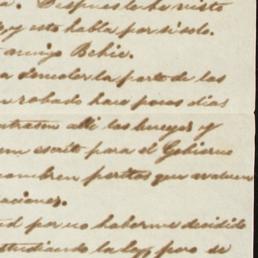 . Despues le he visto
, y esto habla por si solo.
amigo Behic.
a devolver la parte de los
robado hace pocos dias
ntraron alli los bueyes y
un escrito para el Gobierno
nombren peritos que evaluen
aciones.
por no haberme decidido
studiando la ley, pero de